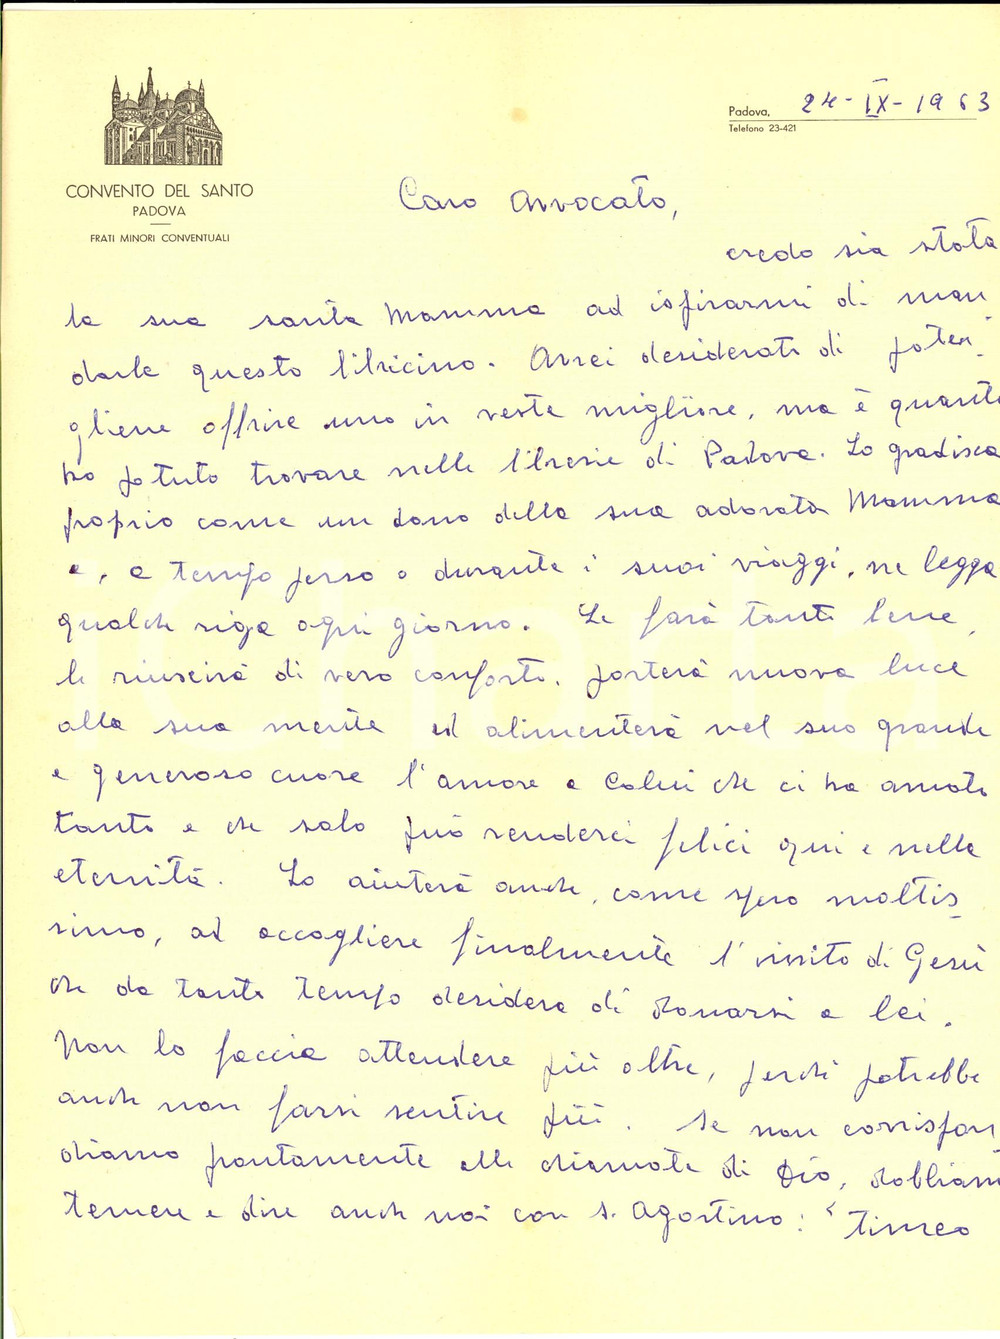 Padova, 24-IX-1963
Telefono 23-421
CONVENTO DEL SANTO
PADOVA
FRATI MINORI CONVENTUALI
Caro Avvocato,
credo sia stata
la sua santa Mamma ad ispirarmi di man
darle questo libricino. Avrei desiderato di poter
gliene offrire uno in veste migliore, ma è quanto
ho potuto trovare nelle librerie di Padova. Lo gradisca
proprio come un dono della sua adorata Mamma
e, a tempo perso o durante i suoi viaggi, ne legga
qualche riga ogni giorno. Le farà tanto bene,
le riuscirà di vero conforto, porterà nuova luce
alla sua mente ed alimenterà nel suo grande
e generoso cuore l'amore a Colui che ci ha amato
tanto e che solo può renderci felici qui e nella
eternità. Lo aiuterà anche, come spero moltis
simo, ad accogliere finalmente l'invito di Gesù
che da tanto tempo desidera di donarsi a lei.
Non lo faccia attendere più oltre, perché potrebbe
anche non farsi sentire più. Se non corrispon
diamo prontamente alle chiamate di Dio, dobbiamo
temere e dire anche noi con s. Agostino: "Timeo